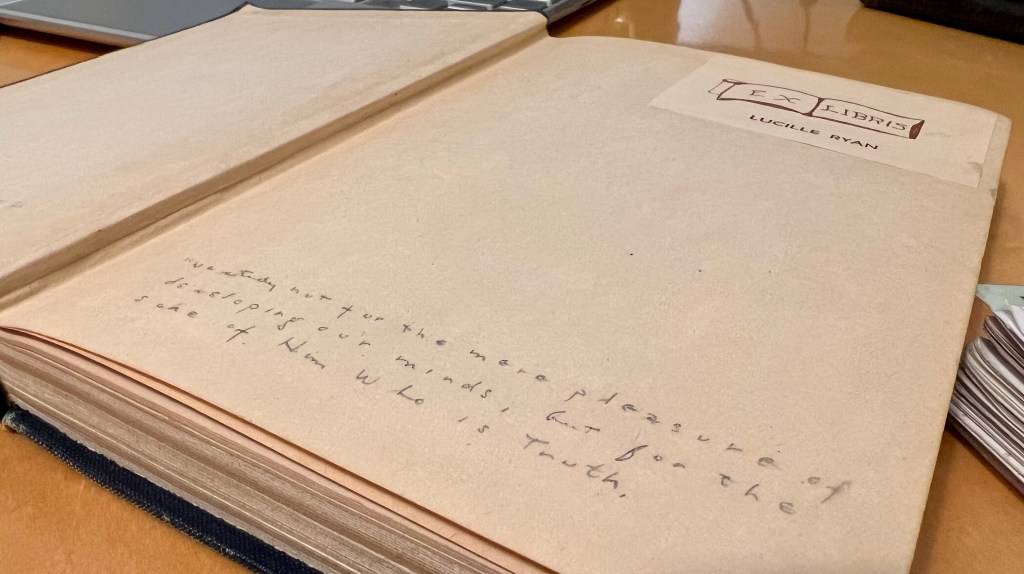 EX LIBRIS
LUCILLE RYAN
We study not for the mere pleasure of
developing our minds, but for the
sake of Him Who is Truth.